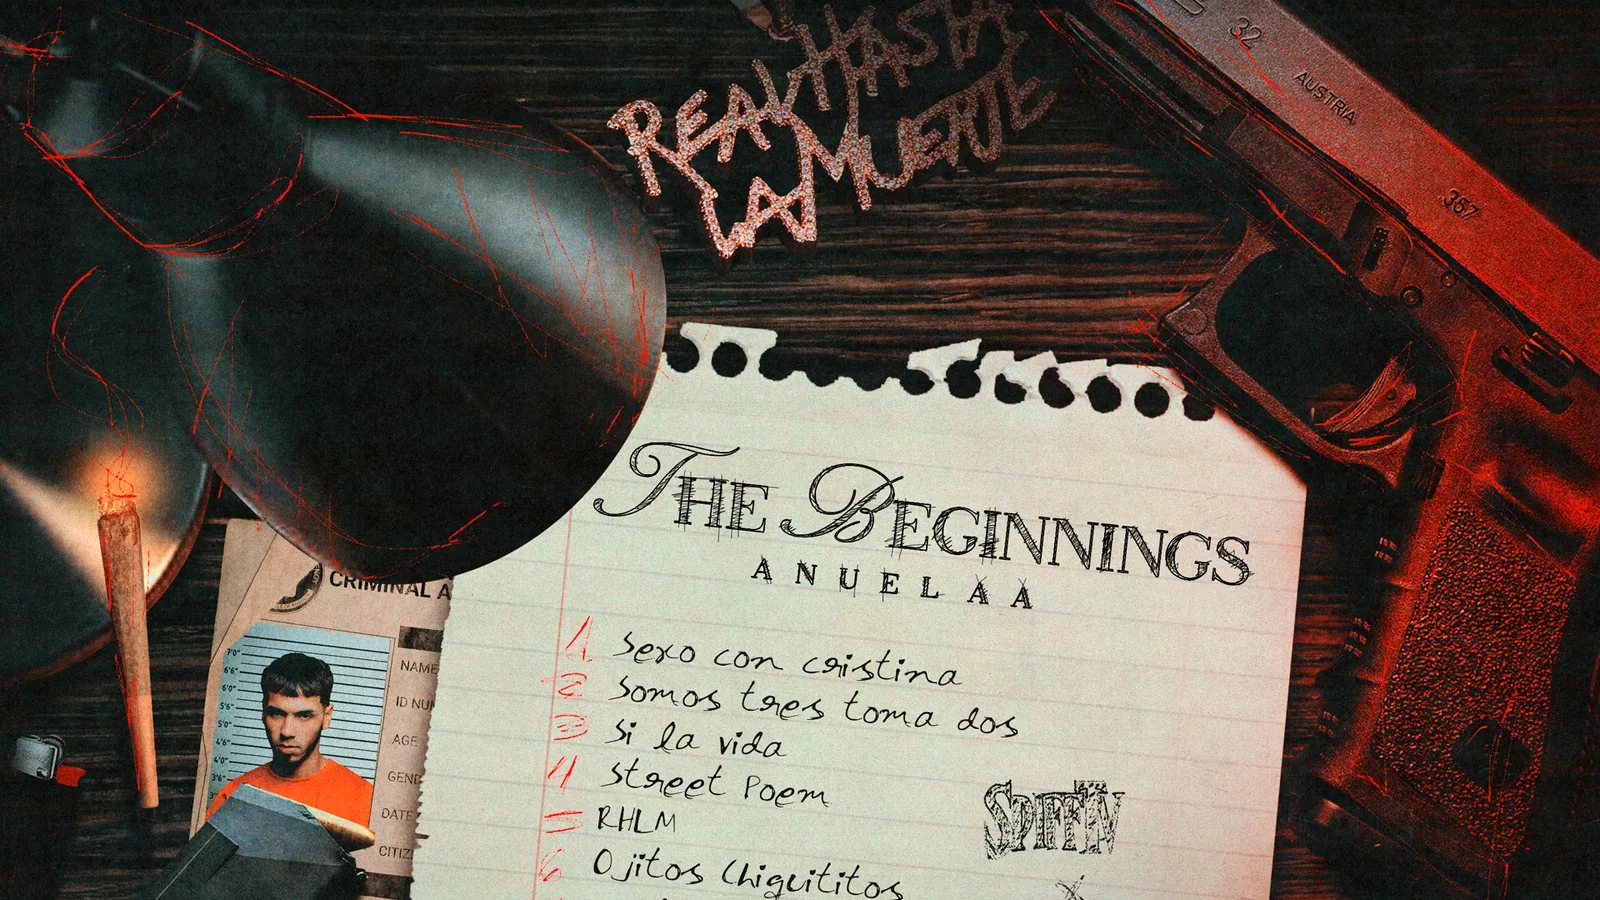 REAL HASTA
LA MUERTE
32
AUSTRIA
.357
THE BEGINNINGS
ANUEL AA
1 sexo con cristina
2 somos tres toma dos
3 si la vida
4 street poem
5 RHLM
6 Ojitos Chiquititos
SPIFF TV
CRIMINAL A
NAME
ID NUM
AGE
GEND
DATE
CITIZ
7'0"
6'6"
6'0"
5'6"
5'0"
4'6"
4'0"
3'6"